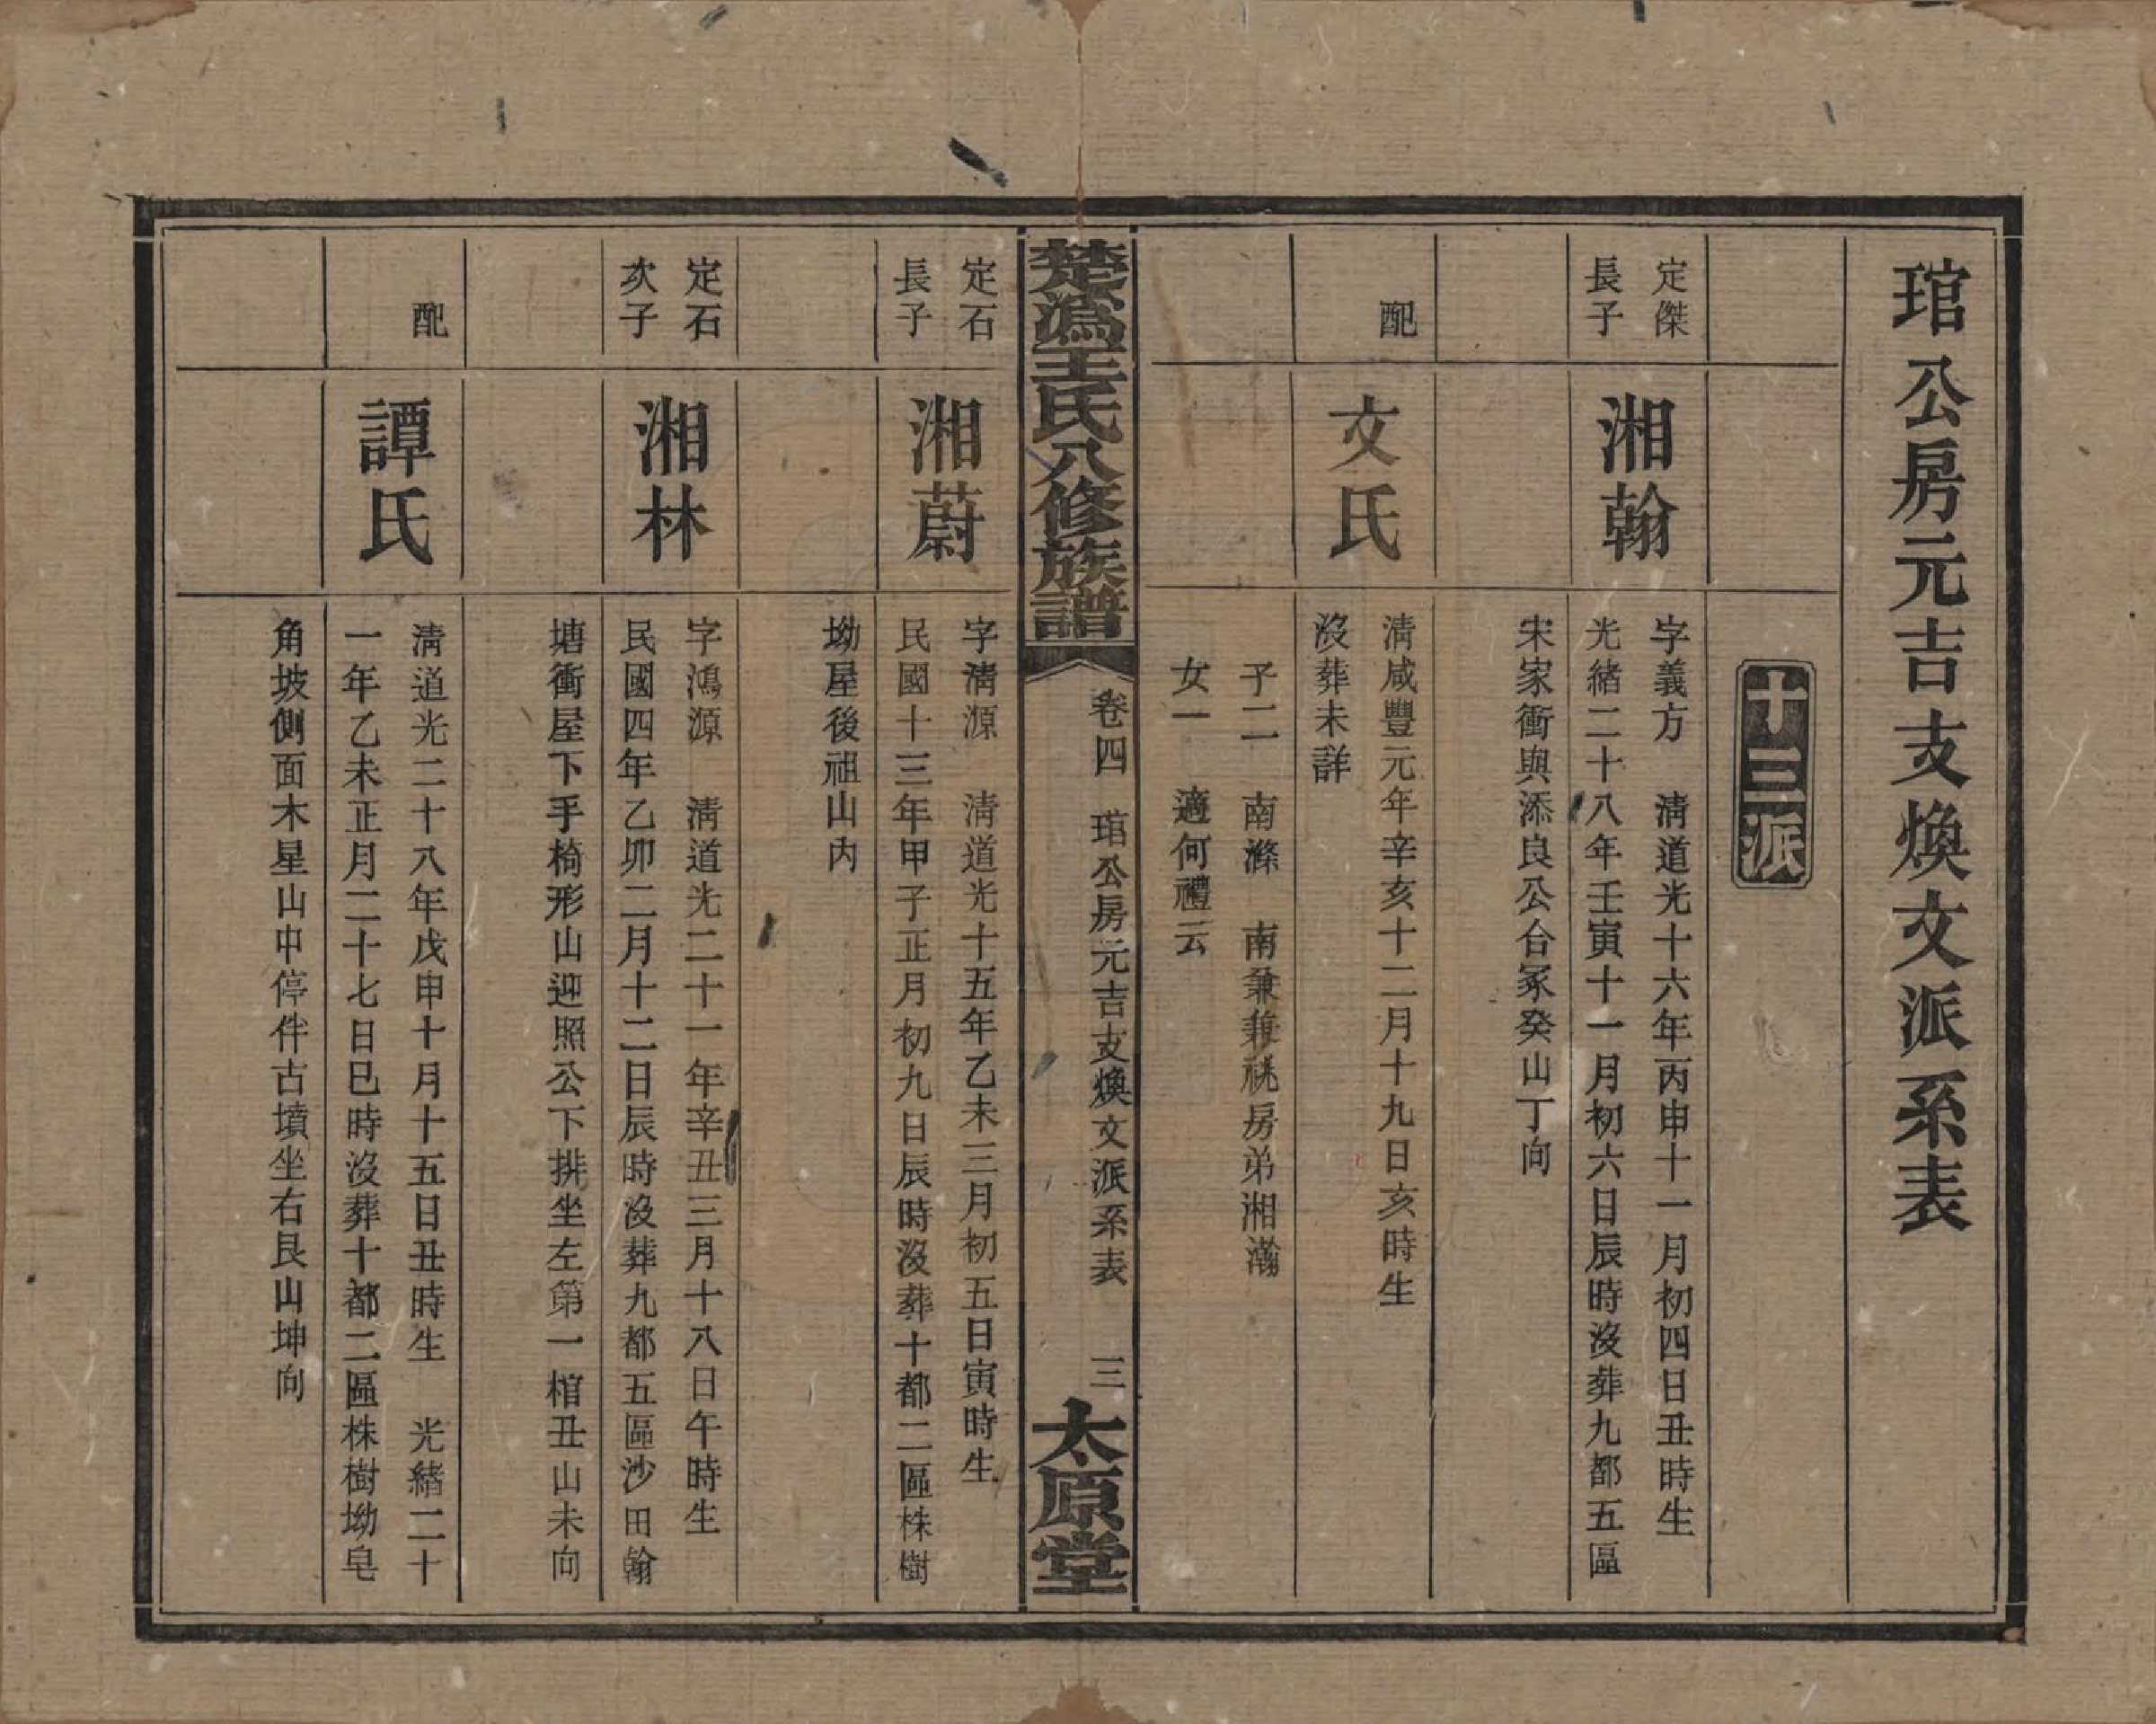 琯公房元吉支煥文派系表
十三派
定傑
長子
湘翰
字義方　清道光十六年丙申十一月初四日丑時生
光緒二十八年壬寅十一月初六日辰時沒葬九都五區
宋家衝與添良公合冢癸山丁向
配
文氏
清咸豐元年辛亥十二月十九日亥時生
沒葬未詳
子二　南滌　南秉兼祧房弟湘瀚
女一　適何禮云
楚溈王氏八修族譜
卷四　琯公房元吉支煥文派系表　三
太原堂
定石
長子
湘蔚
字清源　清道光十五年乙未三月初五日寅時生
民國十三年甲子正月初九日辰時沒葬十都二區株樹
坳屋後祖山內
定石
次子
湘林
字鴻源　清道光二十一年辛丑三月十八日午時生
民國四年乙卯二月十二日辰時沒葬九都五區沙田翰
塘衝屋下手椅形山迎照公下排坐左第一棺丑山未向
配
譚氏
清道光二十八年戊申十月十五日丑時生　光緒二十
一年乙未正月二十七日巳時沒葬十都二區株樹坳皂
角坡側面木星山中停伴古墳坐右艮山坤向